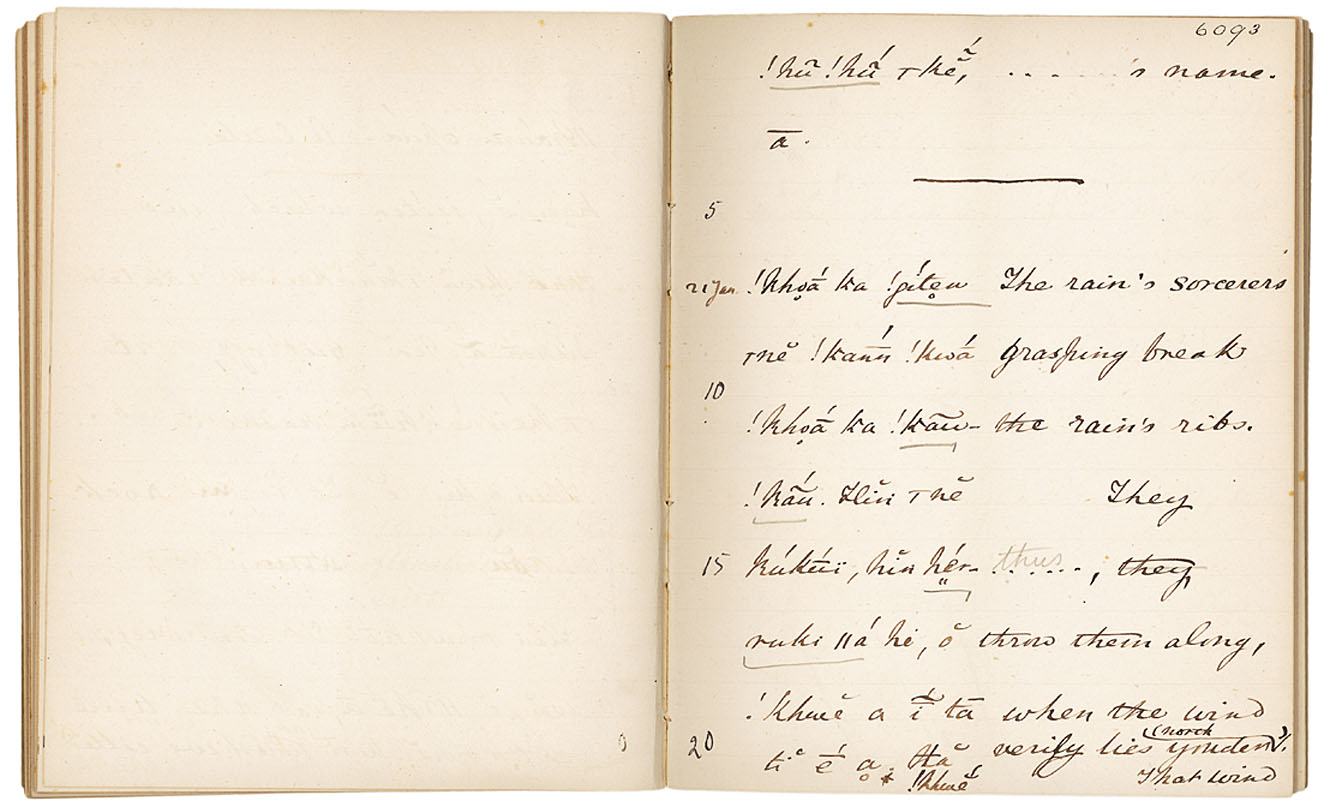 6093
!hũ !hṹ ⊤kẽ́, . . . . . . 's name.
ā .
5
21 Jan. !khọá̄ ka !gítẹn The rain's sorcerers
⊤nĕ !kánn !kwā́ grasping break
10
!khọá̄ ka !kāū- the rain's ribs.
!kā́ū. Hĭn ⊤nĕ They
15 kúkúi, hĭn hér- thus . . . . , they
ruki ǁá hi, ŏ throw them along,
!khwĕ a ĩ́ tā when the wind
(north
20 tĭ é a. Hă verily lies yonder).
!khwĕ́ That wind